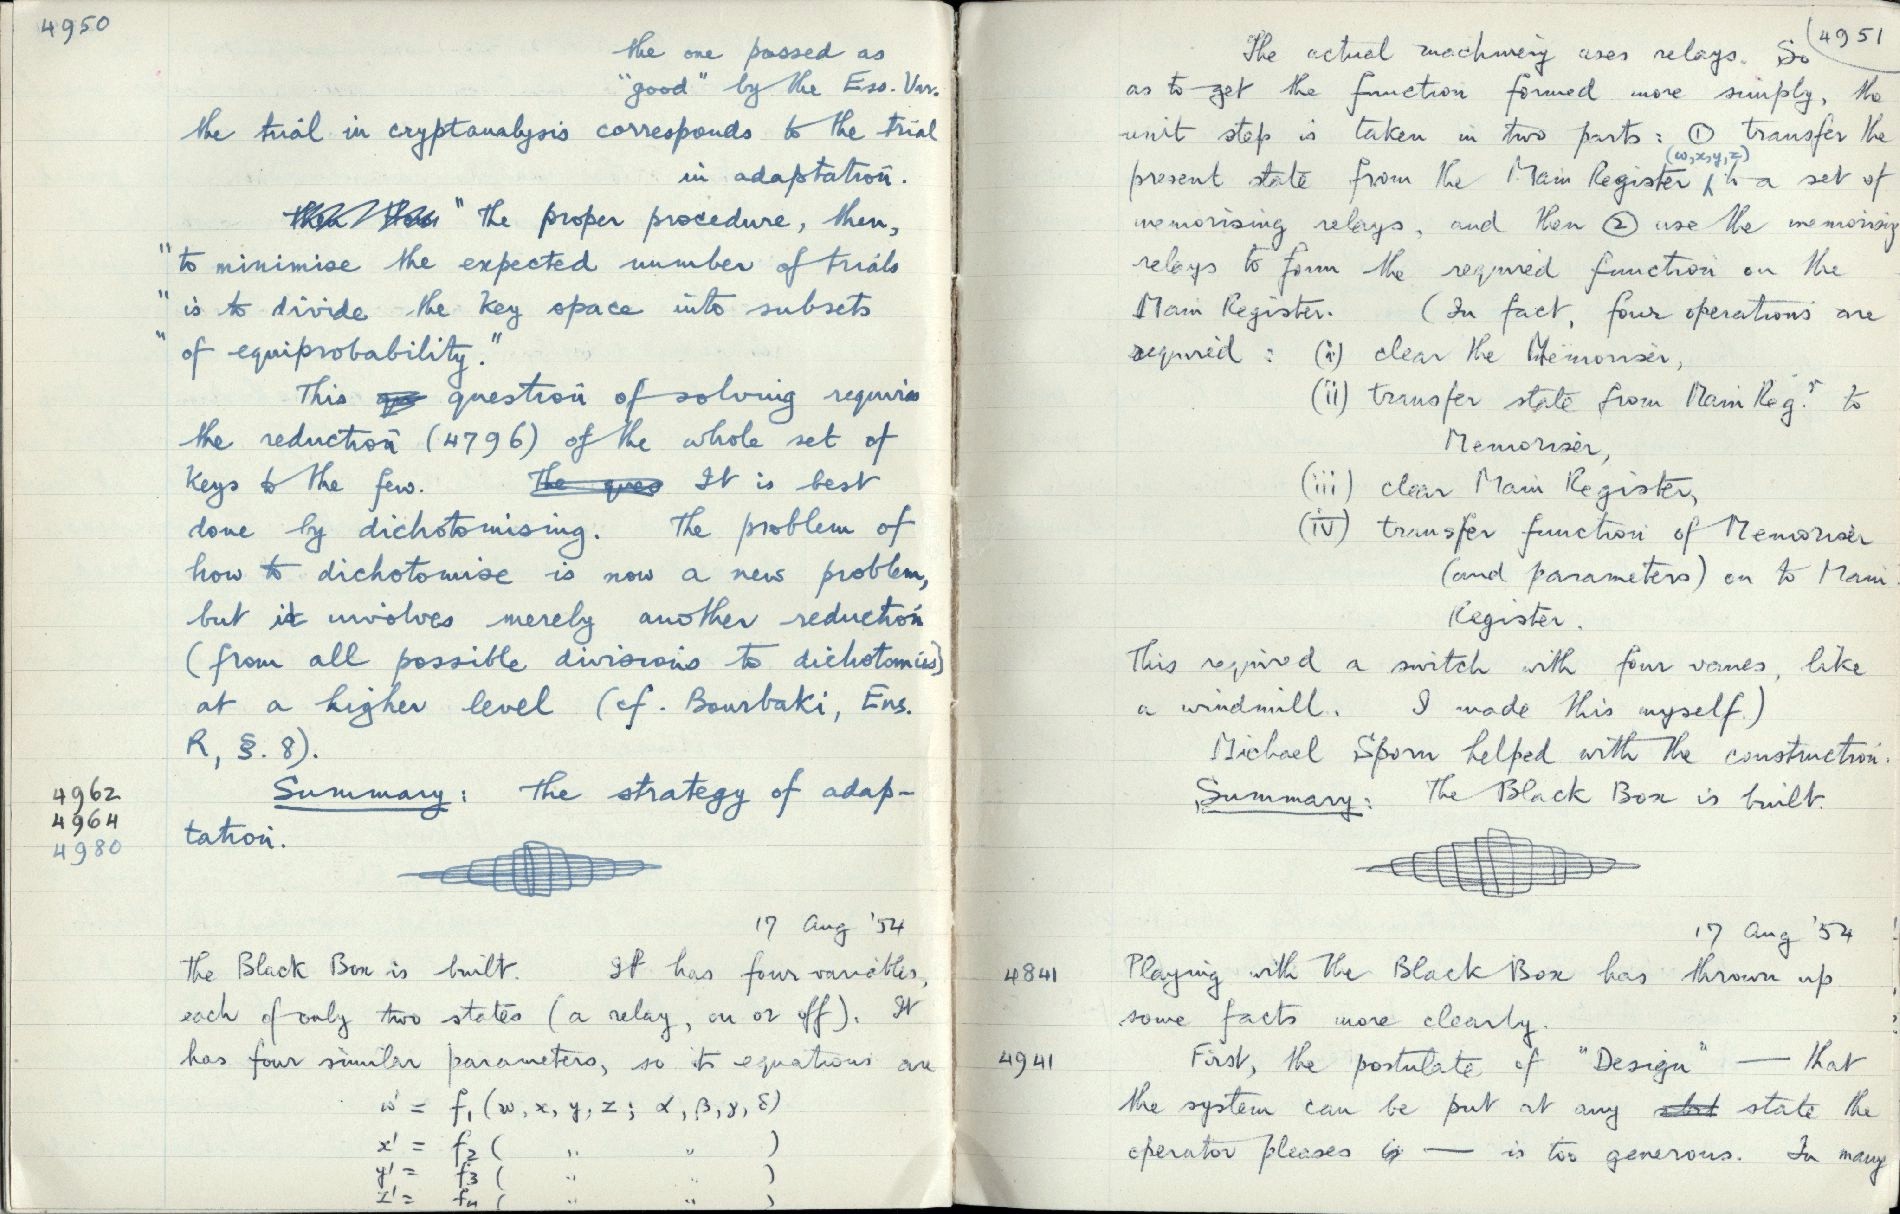 4950
the one passed as
"good" by the Ess. Var.
the trial in cryptanalysis corresponds to the trial
in adaptation.
"the proper procedure, then,
"to minimise the expected number of trials
"is to divide the key space into subsets
"of equiprobability."
This question of solving requires
the reduction (4796) of the whole set of
keys to the few. The ques It is best
done by dichotomising. The problem of
how to dichotomise is now a new problem,
but it involves merely another reduction
(from all possible divisions to dichotomies)
at a higher level (cf. Bourbaki, Ens.
R, §. 8).
4962
4964
4980
Summary: The strategy of adap-
tation.
17 Aug '54
The Black Box is built. It has four variables,
each of only two states (a relay, on or off). It
has four similar parameters, so its equations are
w' = f₁ (w, x, y, z; α, β, γ, δ)
x' = f₂ ( " " )
y' = f₃ ( " " )
z' = f₄ ( " " )
4951
The actual machinery uses relays. So
as to get the function formed more simply, the
unit step is taken in two parts: ① transfer the
(w,x,y,z)
present state from the Main Register to a set of
memorising relays, and then ② use the memorising
relays to form the required function on the
Main Register. (In fact, four operations are
required: (i) clear the Memoriser,
(ii) transfer state from Main Reg.r to
Memoriser,
(iii) clear Main Register,
(iv) transfer function of Memoriser
(and parameters) on to Main
Register.
This required a switch with four vanes, like
a windmill. I made this myself.)
Michael Sporn helped with the construction.
Summary: The Black Box is built.
17 Aug '54
4841 Playing with the Black Box has thrown up
some facts more clearly.
4941 First, the postulate of "Design" — that
the system can be put at any state the
operator pleases — is too generous. In many